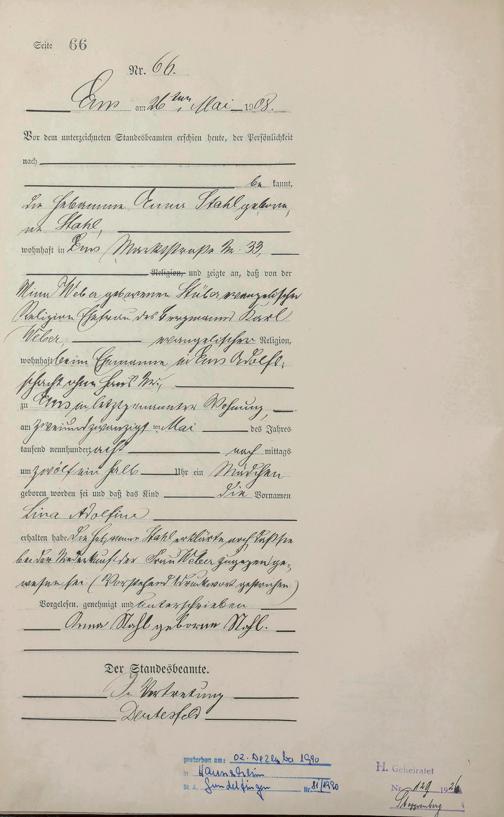 Seite 66
Nr. 66.
Ems am 26ten Mai 1908.
Vor dem unterzeichneten Standesbeamten erschien heute, der Persönlichkeit
nach
be kannt,
die Hebamme Anna Stahl gebore,
ne Stahl,
wohnhaft in Ems Marktstraße Nr. 33,
Religion, und zeigte an, daß von der
Minna Weber geborenen Stüber evangelischer
Religion Ehefrau des Bergmanns Karl
Weber, evangelischer Religion,
wohnhaft beim Ehemanne in Ems Adolfs-
schacht ohne Haus Nr.,
zu Ems in letztgenannter Wohnung,
am zweiundzwanzigsten Mai des Jahres
tausend neunhundert acht nach mittags
um zwölf ein halb Uhr ein Mädchen
geboren worden sei und daß das Kind die Vornamen
Lina Adolfine
erhalten habe. Die Hebamme Stahl erklärte noch daß sie
bei der Niederkunft der Frau Weber zugegen ge-
wesen sei (Vorstehend Druckwort gestrichen)
Vorgelesen, genehmigt und unterschrieben
Anna Stahl geborne Stahl.
Der Standesbeamte.
In Vertretung
gestorben am: 02. Dezember 1990
in
St. A. Gundelfingen Nr. 81/1990
H. Geheiratet
Nr. 129 1926